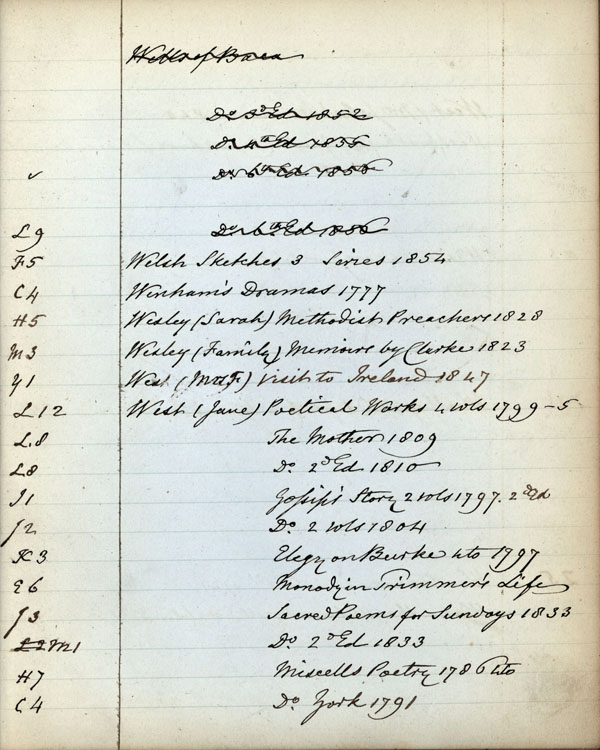 Do 3d Ed 1852
Do 4th Ed 1855
Do 5th Ed 1856
L9 Do 6th Ed 1856
F5 Welsh Sketches 3 Series 1854
C4 Wenham's Dramas 1777
H5 Wesley (Sarah) Methodist Preachers 1828
M3 Wesley (Family) Memoirs by Clarke 1823
Y1 West (Mrs F) Visit to Ireland 1847
L12 West (Jane) Poetical Works 4 vols 1799-5
L8 The Mother 1809
L8 Do 2d Ed 1810
J1 Gossip's Story 2 vols 1797. 2d Ed
J2 Do 2 vols 1804
K3 Elegy on Burke 4to 1797
E6 Monody in Trimmer's Life
J3 Sacred Poems for Sundays 1833
L2 M1 Do 2d Ed 1833
H7 Miscells Poetry 1786 4to
C4 Do York 1791